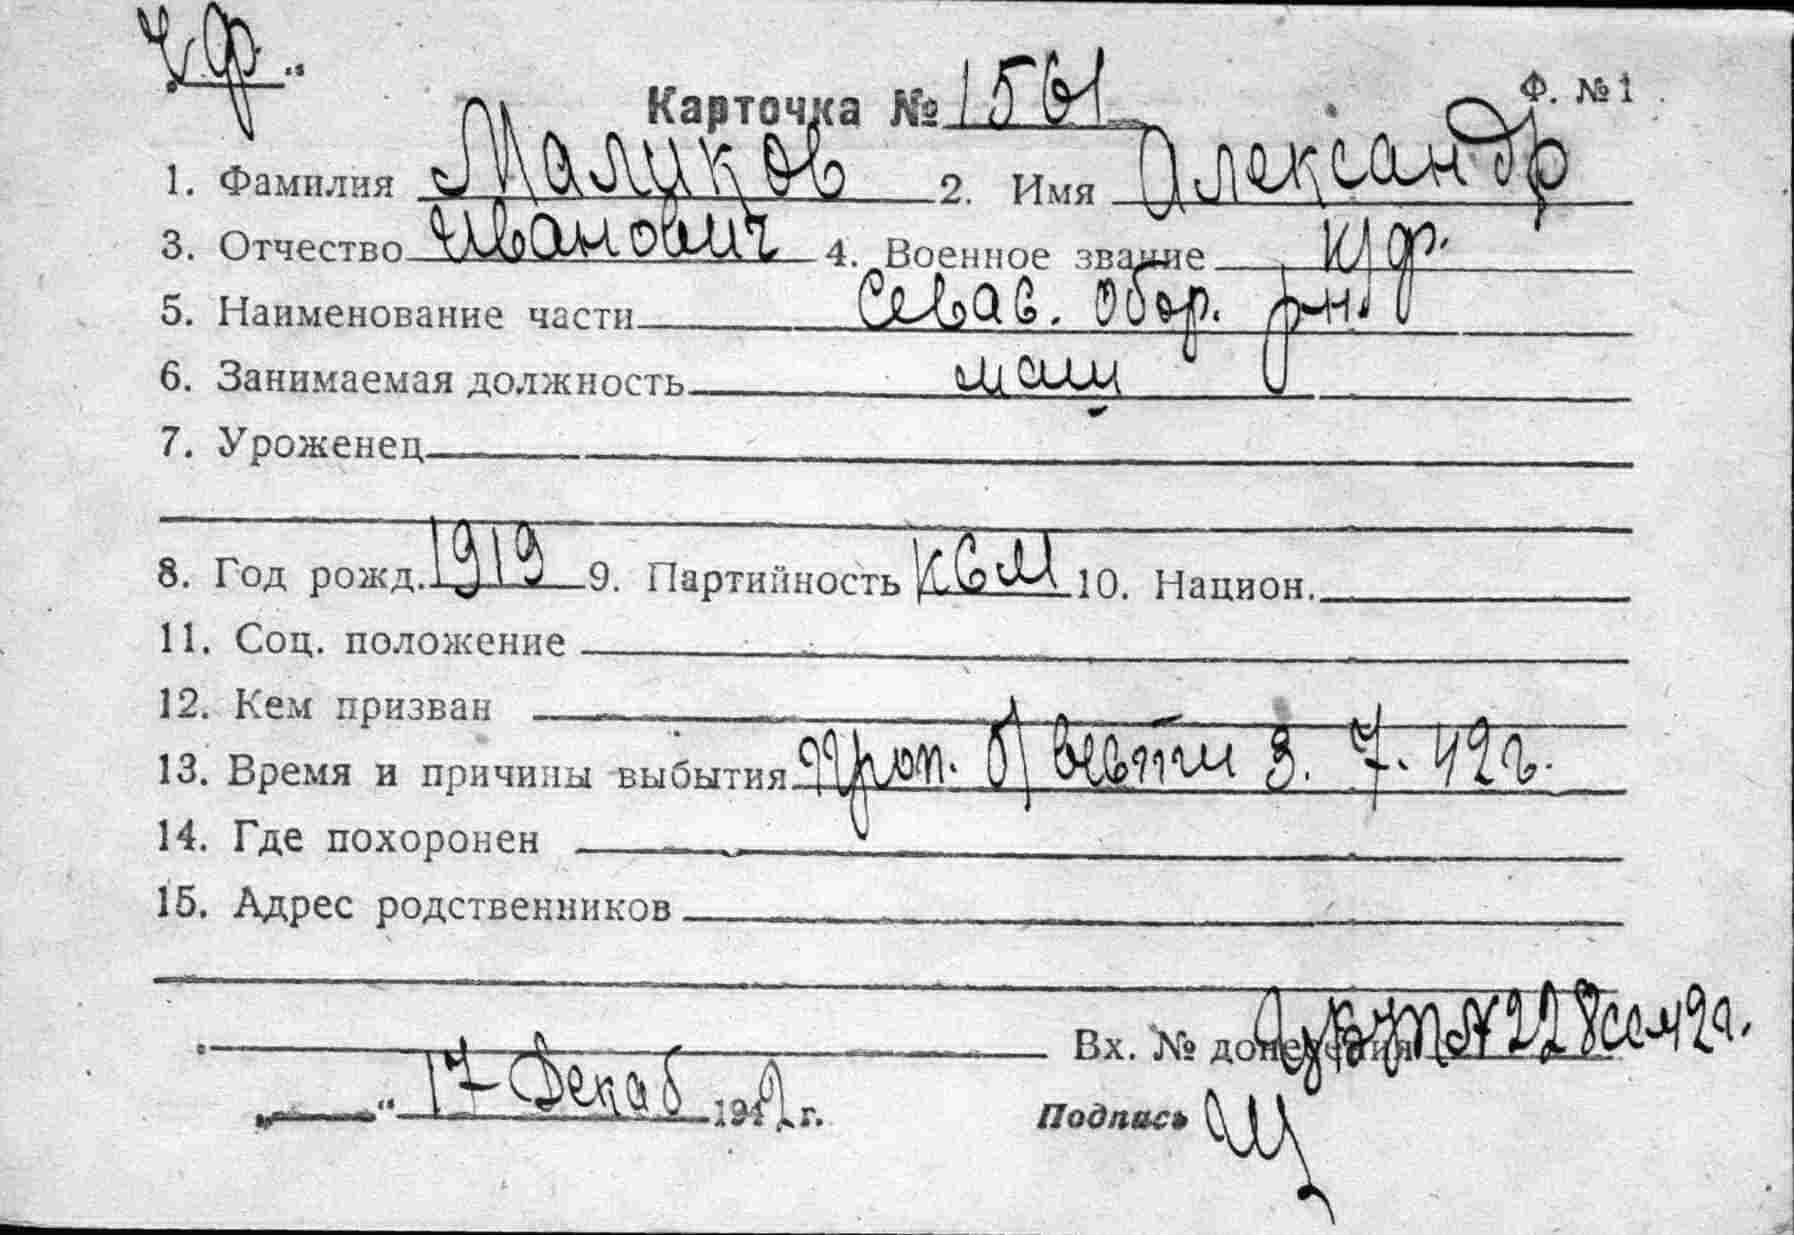 Ч.ф.
Ф. №1
Карточка № 1561
1. Фамилия Маликов 2. Имя Александр
3. Отчество Иванович 4. Военное звание к/ф.
5. Наименование части Севас. обор. р-н.
6. Занимаемая должность маш
7. Уроженец
8. Год рожд. 1919 9. Партийность КСМ 10. Национ.
11. Соц. положение
12. Кем призван
13. Время и причины выбытия Проп. б/вести 3. 7. 42 г.
14. Где похоронен
15. Адрес родственников
Вх. № донесения № 228сс 42г.
„ " 17 Декаб 1942 г. Подпись